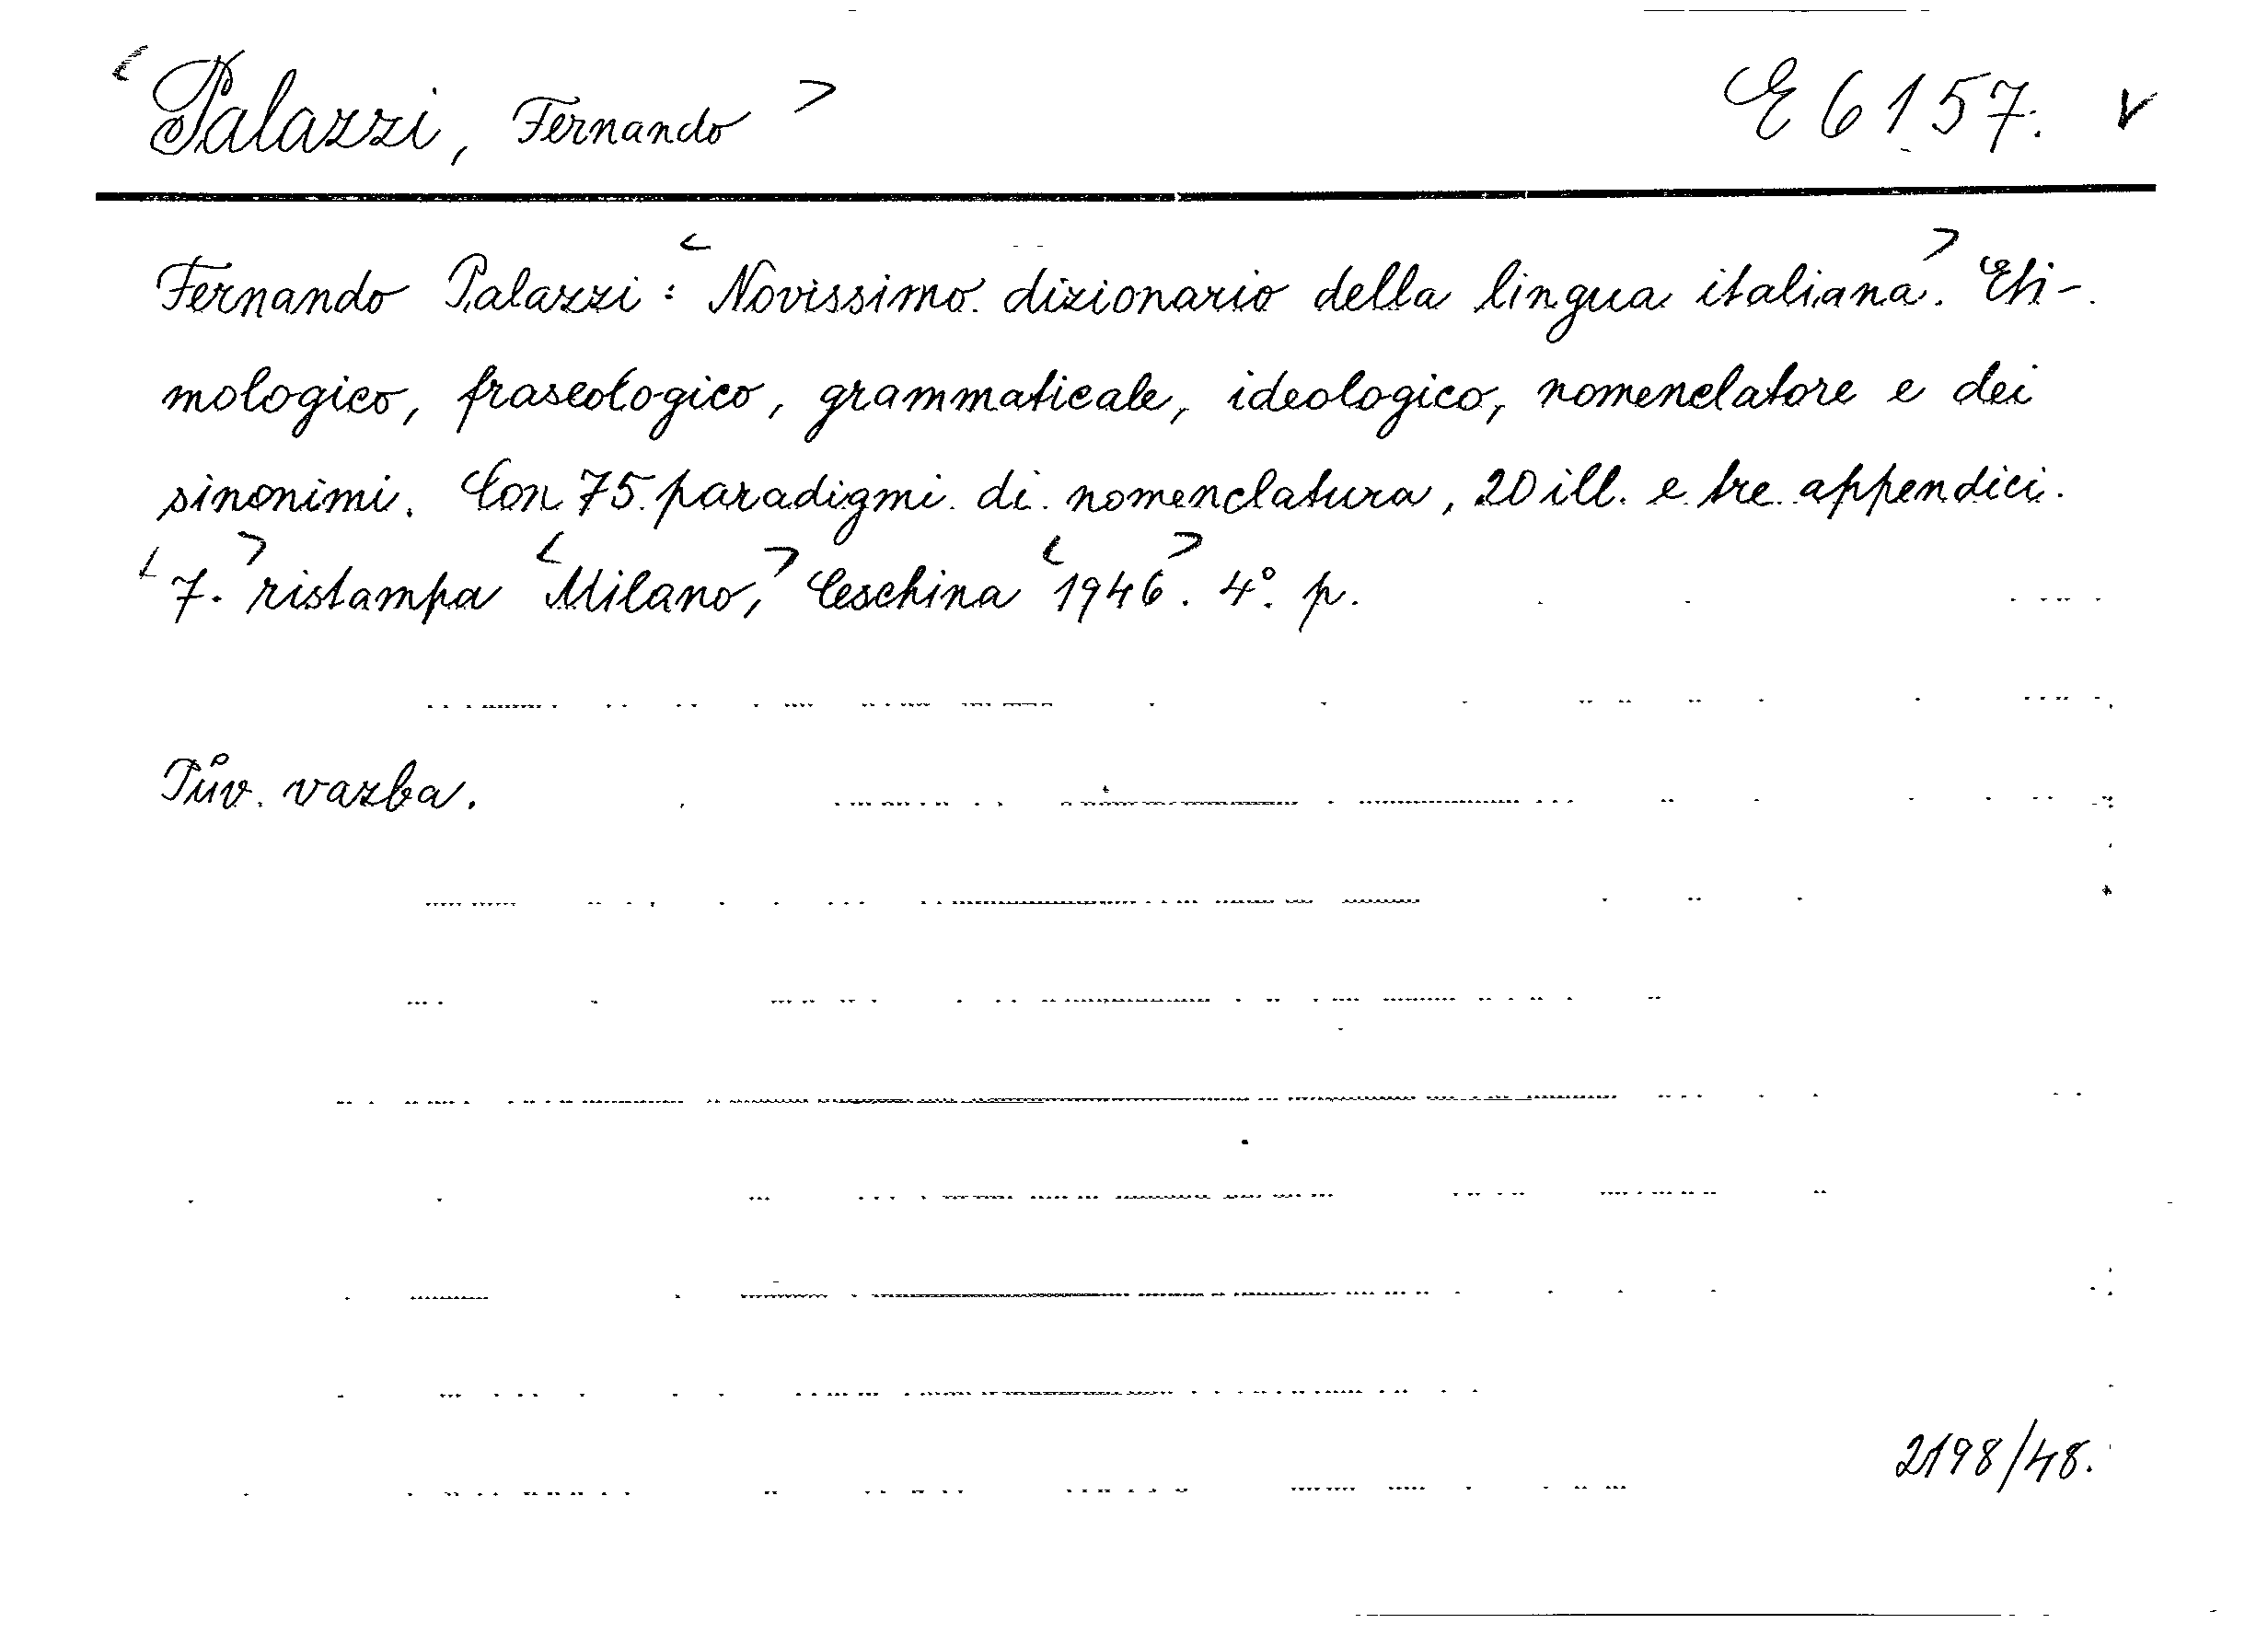 <Palazzi, Fernando> E 6157. v
Fernando Palazzi: <Novissimo dizionario della lingua italiana>. Eti-
mologico, fraseologico, grammaticale, ideologico, nomenclatore e dei
sinonimi. Con 75 paradigmi di nomenclatura, 20 ill. e tre appendici.
<7.> ristampa <Milano,> Ceschina <1946>. 4°. p.
Pův. vazba.
2198/48.